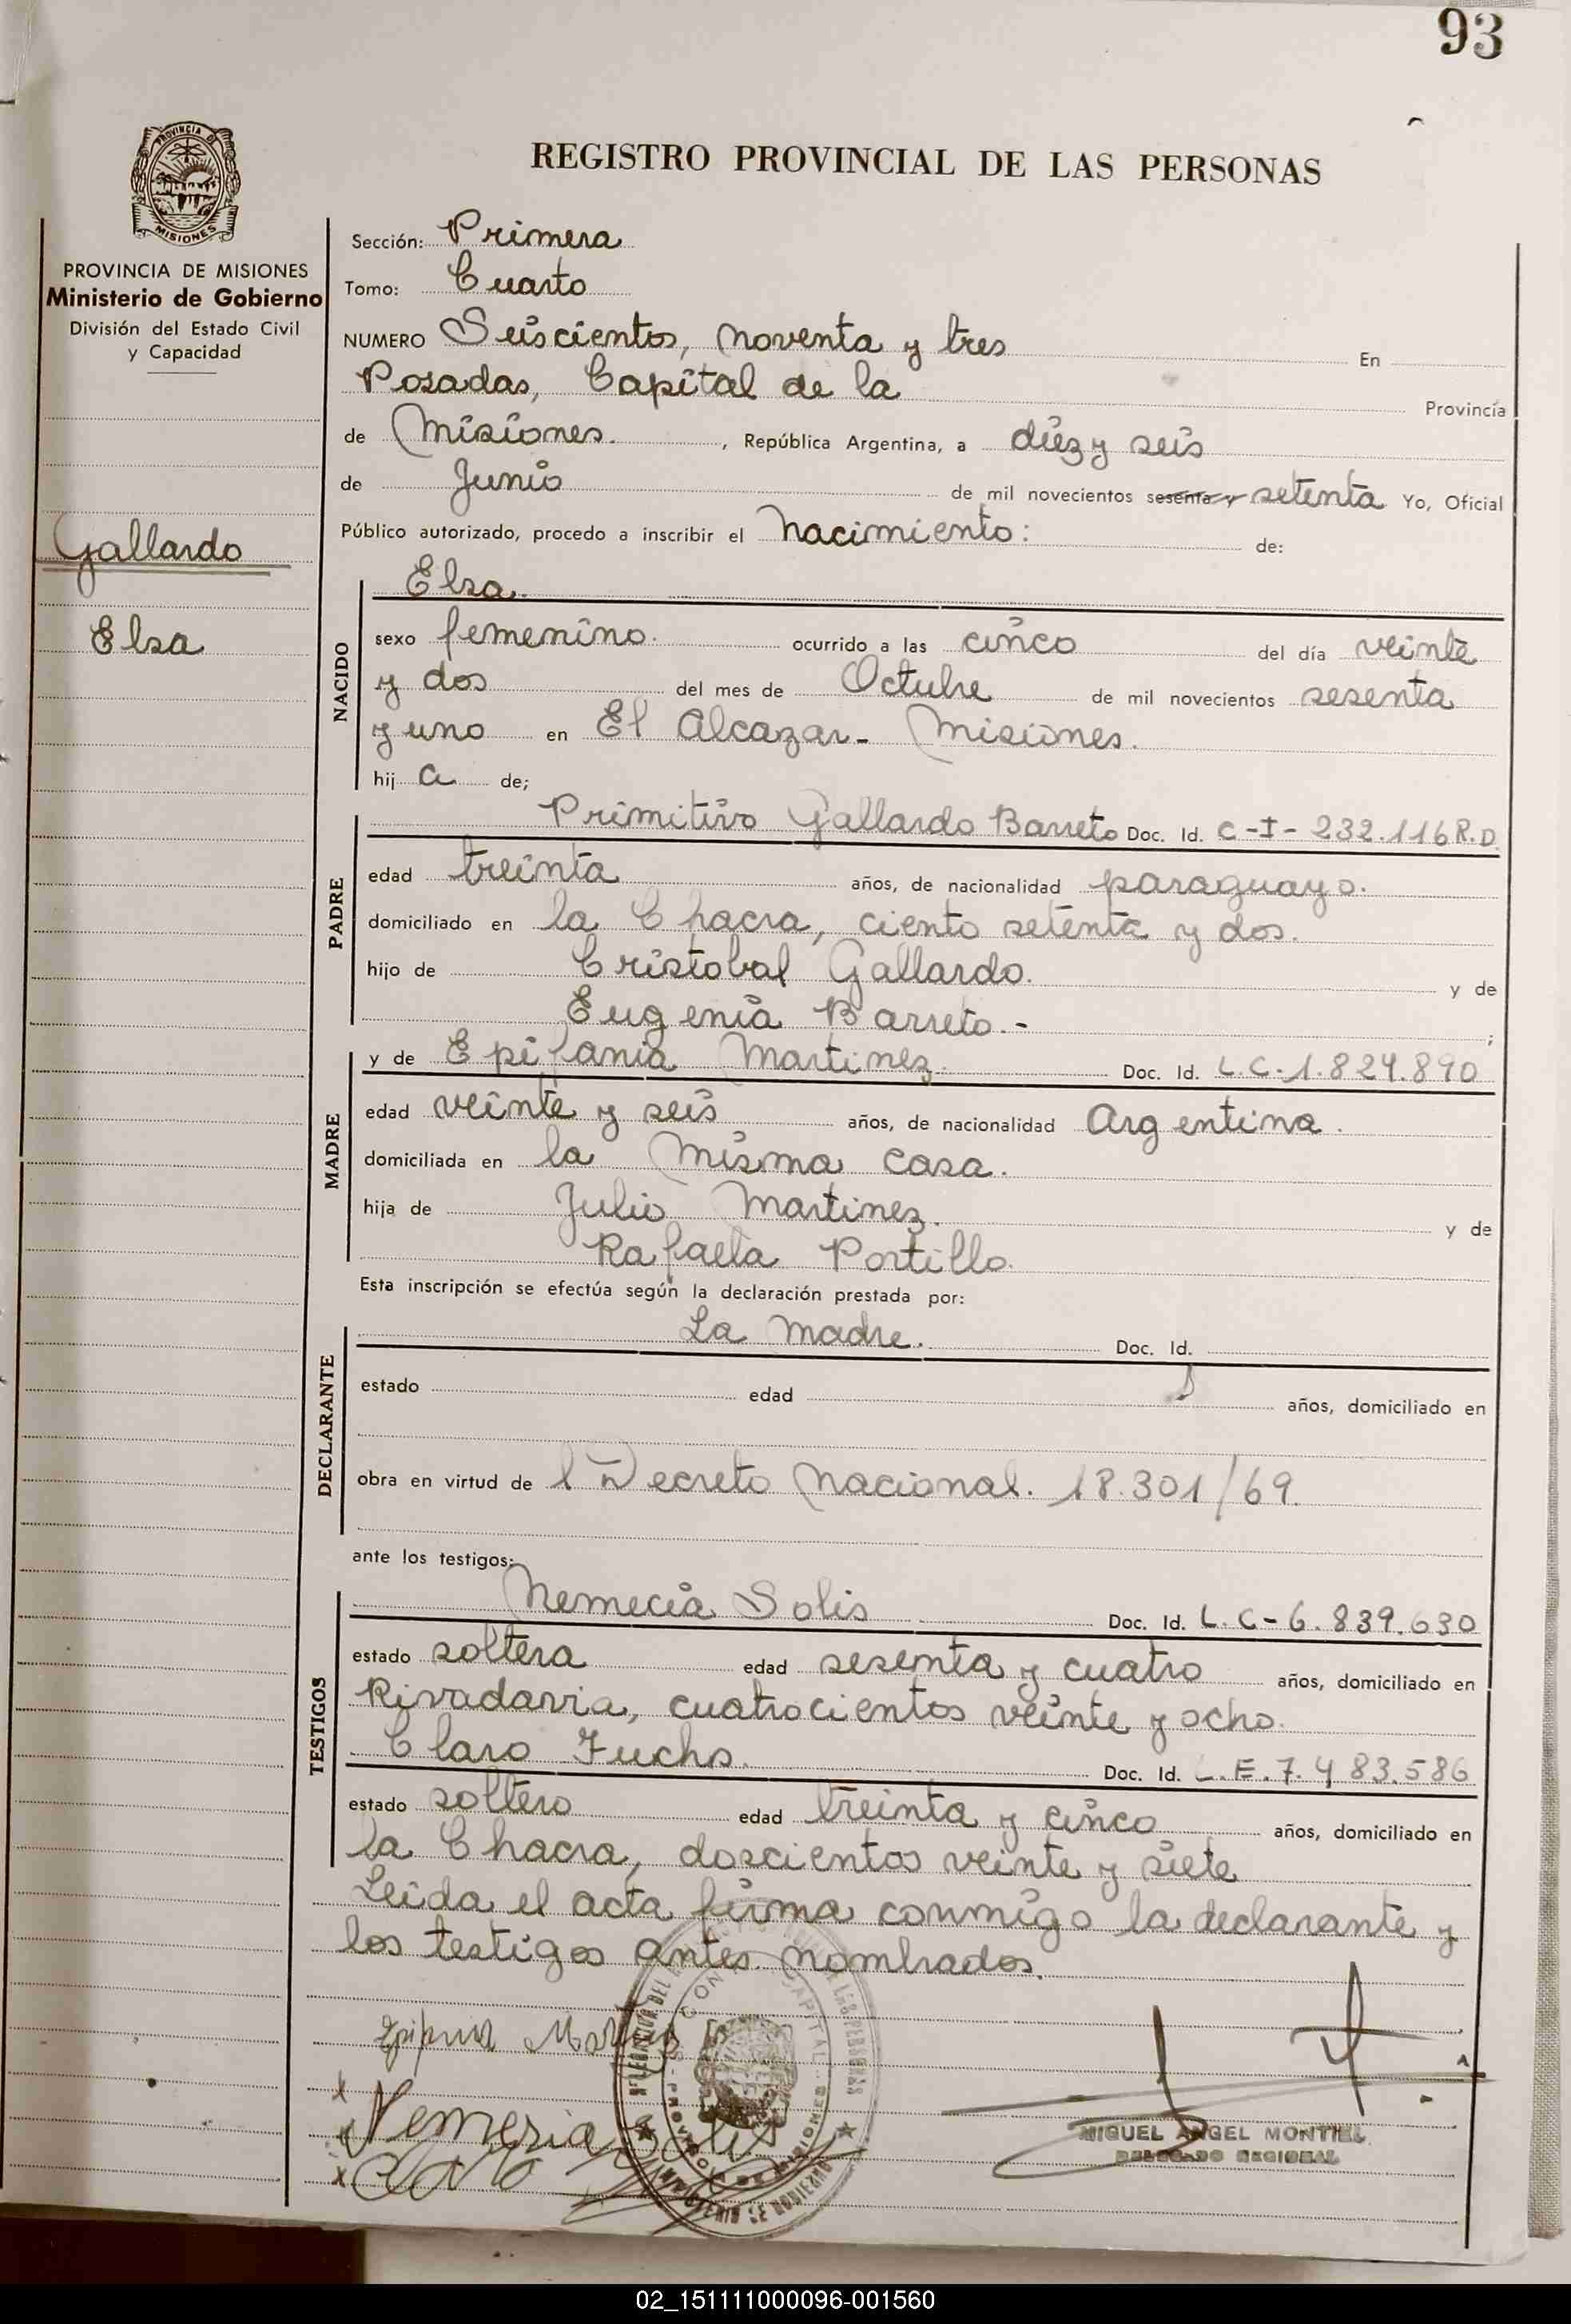 93
REGISTRO PROVINCIAL DE LAS PERSONAS
PROVINCIA DE
MISIONES
PROVINCIA DE MISIONES
Ministerio de Gobierno
División del Estado Civil
y Capacidad
Gallardo
Elsa
Sección: Primera
Tomo: Cuarto
NUMERO Seiscientos, noventa y tres En
Posadas, Capital de la Provincia
de Misiones. , República Argentina, a diez y seis
de Junio de mil novecientos sesenta y setenta Yo, Oficial
Público autorizado, procedo a inscribir el nacimiento: de:
NACIDO
Elsa.
sexo femenino. ocurrido a las cinco del día veinte
y dos del mes de Octubre de mil novecientos sesenta
y uno en El Alcazar - Misiones.
hij a de;
PADRE
Primitivo Gallardo Barreto Doc. Id. C-I-232.116 R.D.
edad treinta años, de nacionalidad paraguayo.
domiciliado en la Chacra, ciento setenta y dos.
hijo de Cristobal Gallardo. y de
Eugenia Barreto.- ;
MADRE
y de Epifania Martinez. Doc. Id. L.C-1.824.890
edad veinte y seis años, de nacionalidad Argentina.
domiciliada en la misma casa.
hija de Julio Martinez. y de
Rafaela Portillo.
Esta inscripción se efectúa según la declaración prestada por:
DECLARANTE
La madre. Doc. Id.
estado edad años, domiciliado en
obra en virtud de l Decreto Nacional. 18.301/69.
ante los testigos:
TESTIGOS
Nemecia Solis Doc. Id. L.C-6.839.630
estado soltera edad sesenta y cuatro años, domiciliado en
Rivadavia, cuatrocientos veinte y ocho.
Claro Fuchs. Doc. Id. L.E.7.483.586
estado soltero edad treinta y cinco años, domiciliado en
la Chacra, doscientos veinte y siete
Leida el acta firma conmigo la declarante y
los testigos antes nombrados.
Nemezia Solis
MIGUEL ANGEL MONTIEL
DELEGADO REGIONAL
02_151111000096-001560